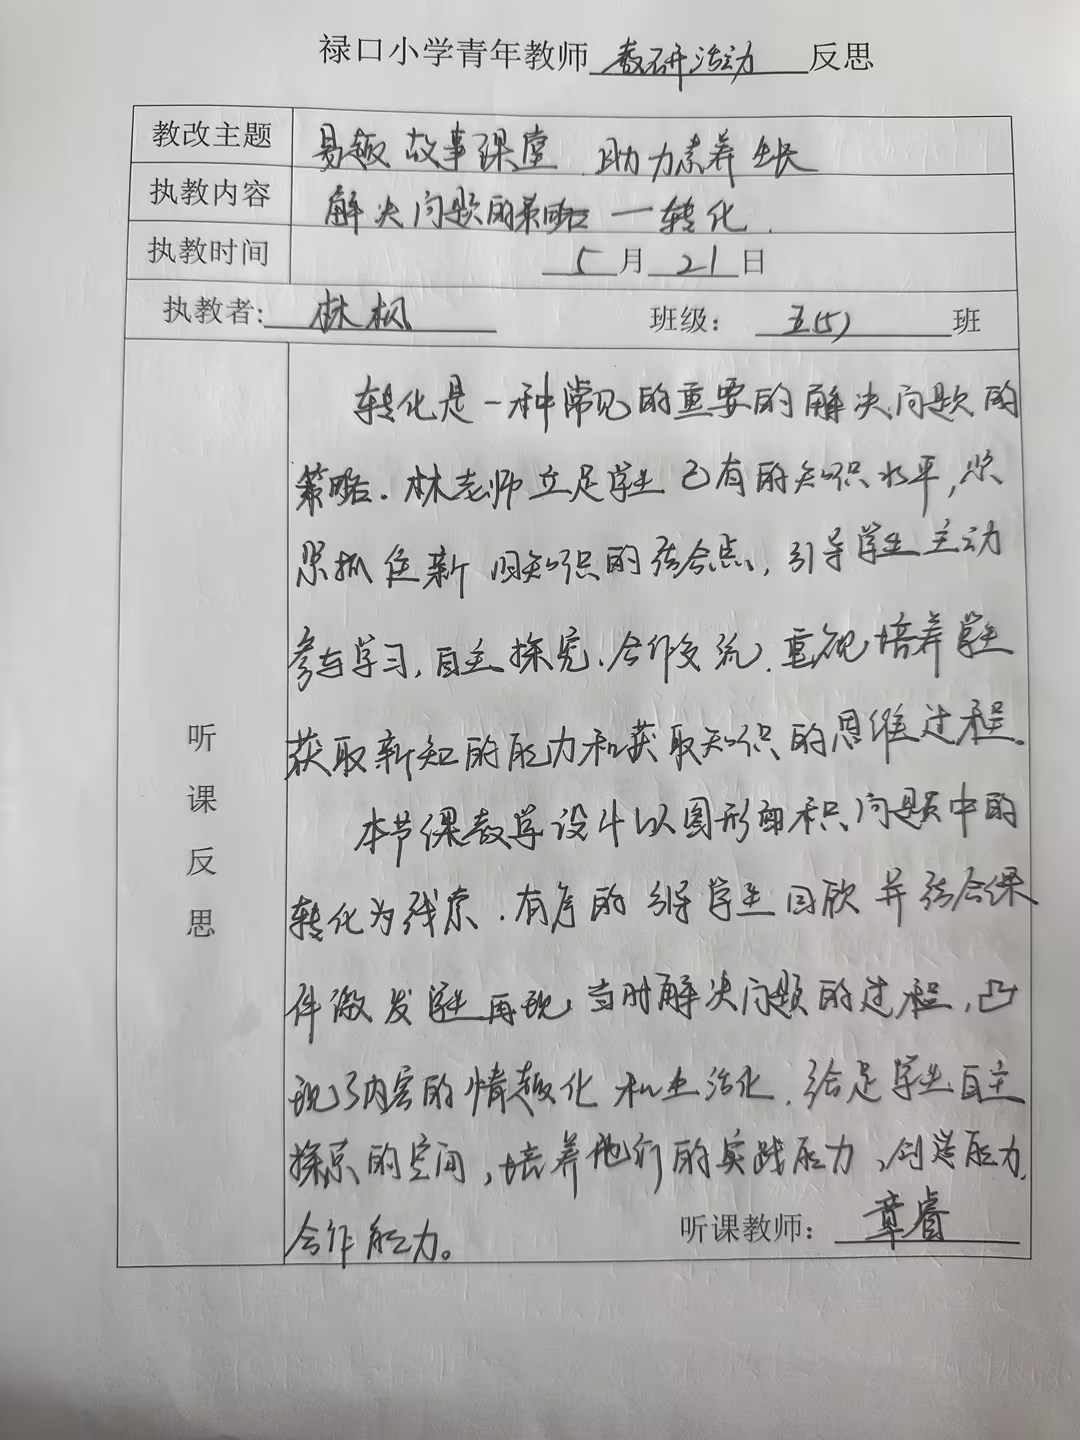 禄口小学青年教师 教研活动 反思
教改主题 易趣故事课堂 助力素养生长
执教内容 解决问题的策略 —转化.
执教时间 5月21日
执教者: 林枫 班级: 五(5) 班
听课反思
转化是一种常见的重要的解决问题的
策略. 林老师立足学生已有的知识水平, 紧
紧抓住新旧知识的结合点, 引导学生主动
参与学习, 自主探究、合作交流. 重视培养学生
获取新知的能力和获取知识的思维过程.
本节课教学设计以图形面积问题中的
转化为线索. 有序的引导学生回顾并结合课
件激发学生再现当时解决问题的过程, 凸
现了内容的情趣化和生活化. 给足学生自主
探索的空间, 培养他们的实践能力、创造能力、
合作能力。
听课教师: 章睿